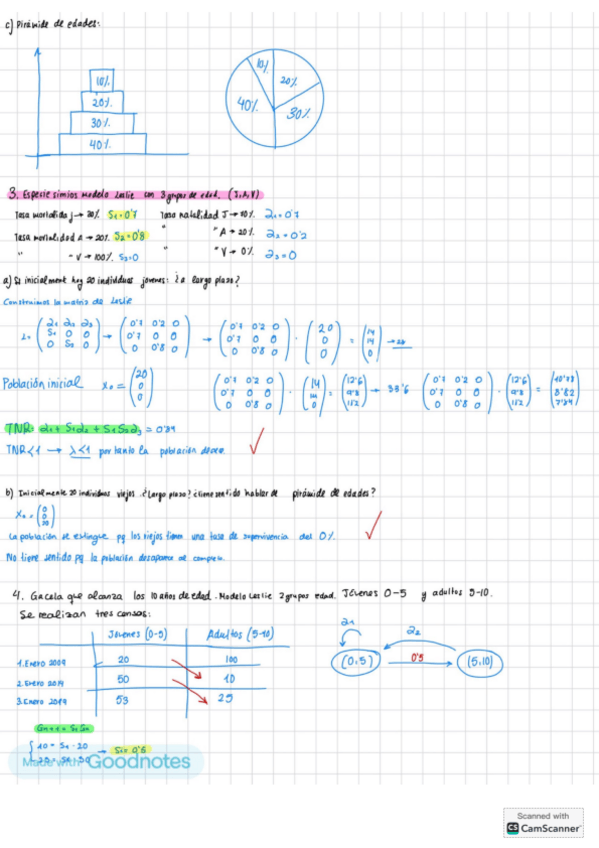 c) Pirámide de edades:
10%
20%
30%
40%
10%
20%
40%
30%
3. Especie simios modelo Leslie con 3 grupos de edad. (J,A,V)
Tasa mortalidad J → 30% S₁=0'7 Tasa natalidad J → 70% a₁=0'7
Tasa mortalidad A → 20% S₂=0'8 " " A → 20% a₂=0'2
" " V → 100% S₃=0 " " V → 0% a₃=0
a) Si inicialmente hay 20 individuos jóvenes: ¿a largo plazo?
Construimos la matriz de Leslie
L= (a₁ a₂ a₃ / S₁ 0 0 / 0 S₂ 0) → (0'7 0'2 0 / 0'7 0 0 / 0 0'8 0) → (0'7 0'2 0 / 0'7 0 0 / 0 0'8 0) · (20 / 0 / 0) = (14 / 14 / 0) → 28
Población inicial X₀ = (20 / 0 / 0) (0'7 0'2 0 / 0'7 0 0 / 0 0'8 0) · (14 / 14 / 0) = (12'6 / 9'8 / 11'2) → 33'6 (0'7 0'2 0 / 0'7 0 0 / 0 0'8 0) · (12'6 / 9'8 / 11'2) = (10'78 / 8'82 / 7'84)
TNR: a₁ + S₁a₂ + S₁S₂a₃ = 0'84
TNR<1 → λ<1 por tanto la población decae.
b) Inicialmente 20 individuos viejos ¿Largo plazo? ¿tiene sentido hablar de pirámide de edades?
X₀ = (0 / 0 / 20)
La población se extingue pq los viejos tienen una tasa de supervivencia del 0%.
No tiene sentido pq la población desaparece al completo.
4. Gacela que alcanza los 10 años de edad. Modelo Leslie 2 grupos edad. Jóvenes 0-5 y adultos 5-10.
Se realizan tres censos:
a₁
a₂
Jóvenes (0-5) Adultos (5-10)
(0,5) 0'5 (5,10)
1. Enero 2009 20 100
2. Enero 2014 50 10
3. Enero 2019 53 25
10 = S₁ · 20 → S₁= 0'5
Made with Goodnotes
Scanned with
CS CamScanner